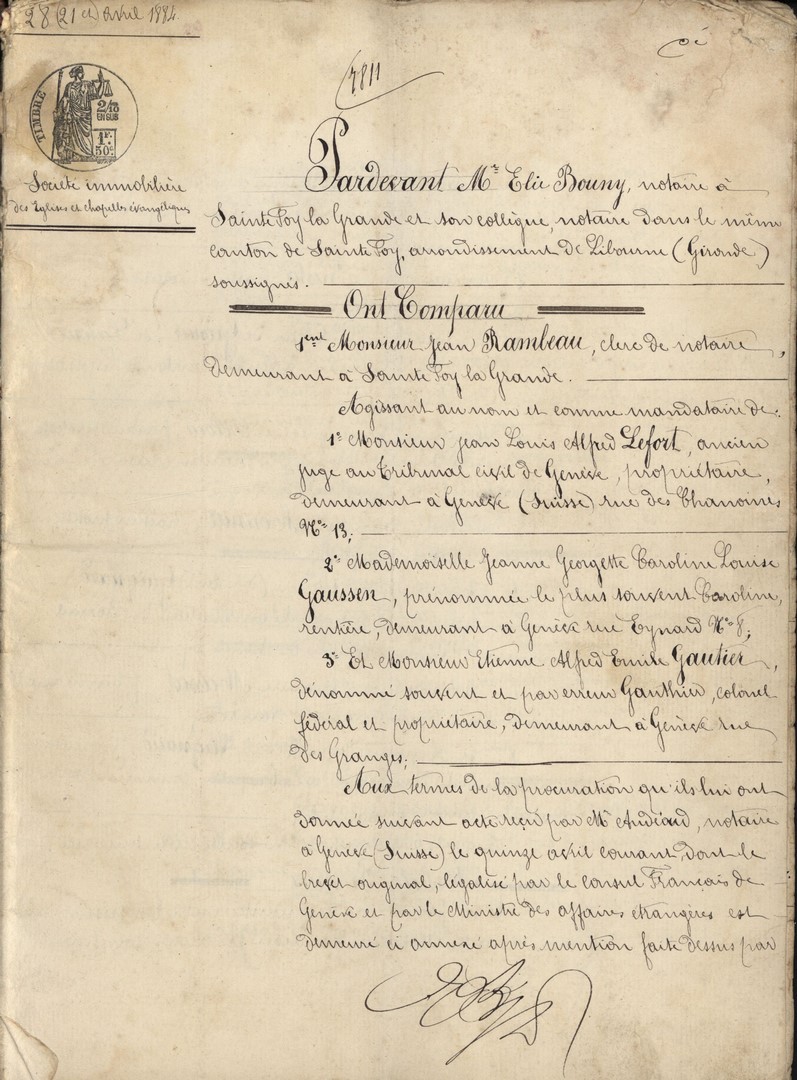 28 (21 et) Avril 1884
TIMBRE
2/10
EN SUS
1F.
50c.
Société immobilière
des Eglises et chapelles évangéliques
Pardevant Mre Elie Bouny, notaire à
Sainte Foy la Grande et son collègue, notaire dans le même
canton de Sainte Foy, arrondissement de Libourne (Gironde)
soussignés.
Ont Comparu
1ent Monsieur Jean Rambeau, clerc de notaire,
demeurant à Sainte Foy la Grande.
Agissant au nom et comme mandataire de:
1o Monsieur Jean Louis Alfred Lefort, ancien
juge au Tribunal civil de Genève, propriétaire,
demeurant à Genève (Suisse) rue des Chanoines
No 13;
2o Mademoiselle Jeanne Georgette Caroline Louise
Gaussen, prénommée le plus souvent Caroline,
rentière, demeurant à Genève rue Eynard No 8;
3o Et Monsieur Etienne Alfred Emile Gautier,
dénommé souvent et par erreur Gauthier, colonel
fédéral et propriétaire, demeurant à Genève rue
des Granges;
Aux termes de la procuration qu'ils lui ont
donnée suivant acte reçu par Me Audéoud, notaire
à Genève (Suisse) le quinze avril courant, dont le
brevet original, légalisé par le consul Français de
Genève et par le Ministre des affaires étrangères est
demeuré ci annexé après mention faite dessus par